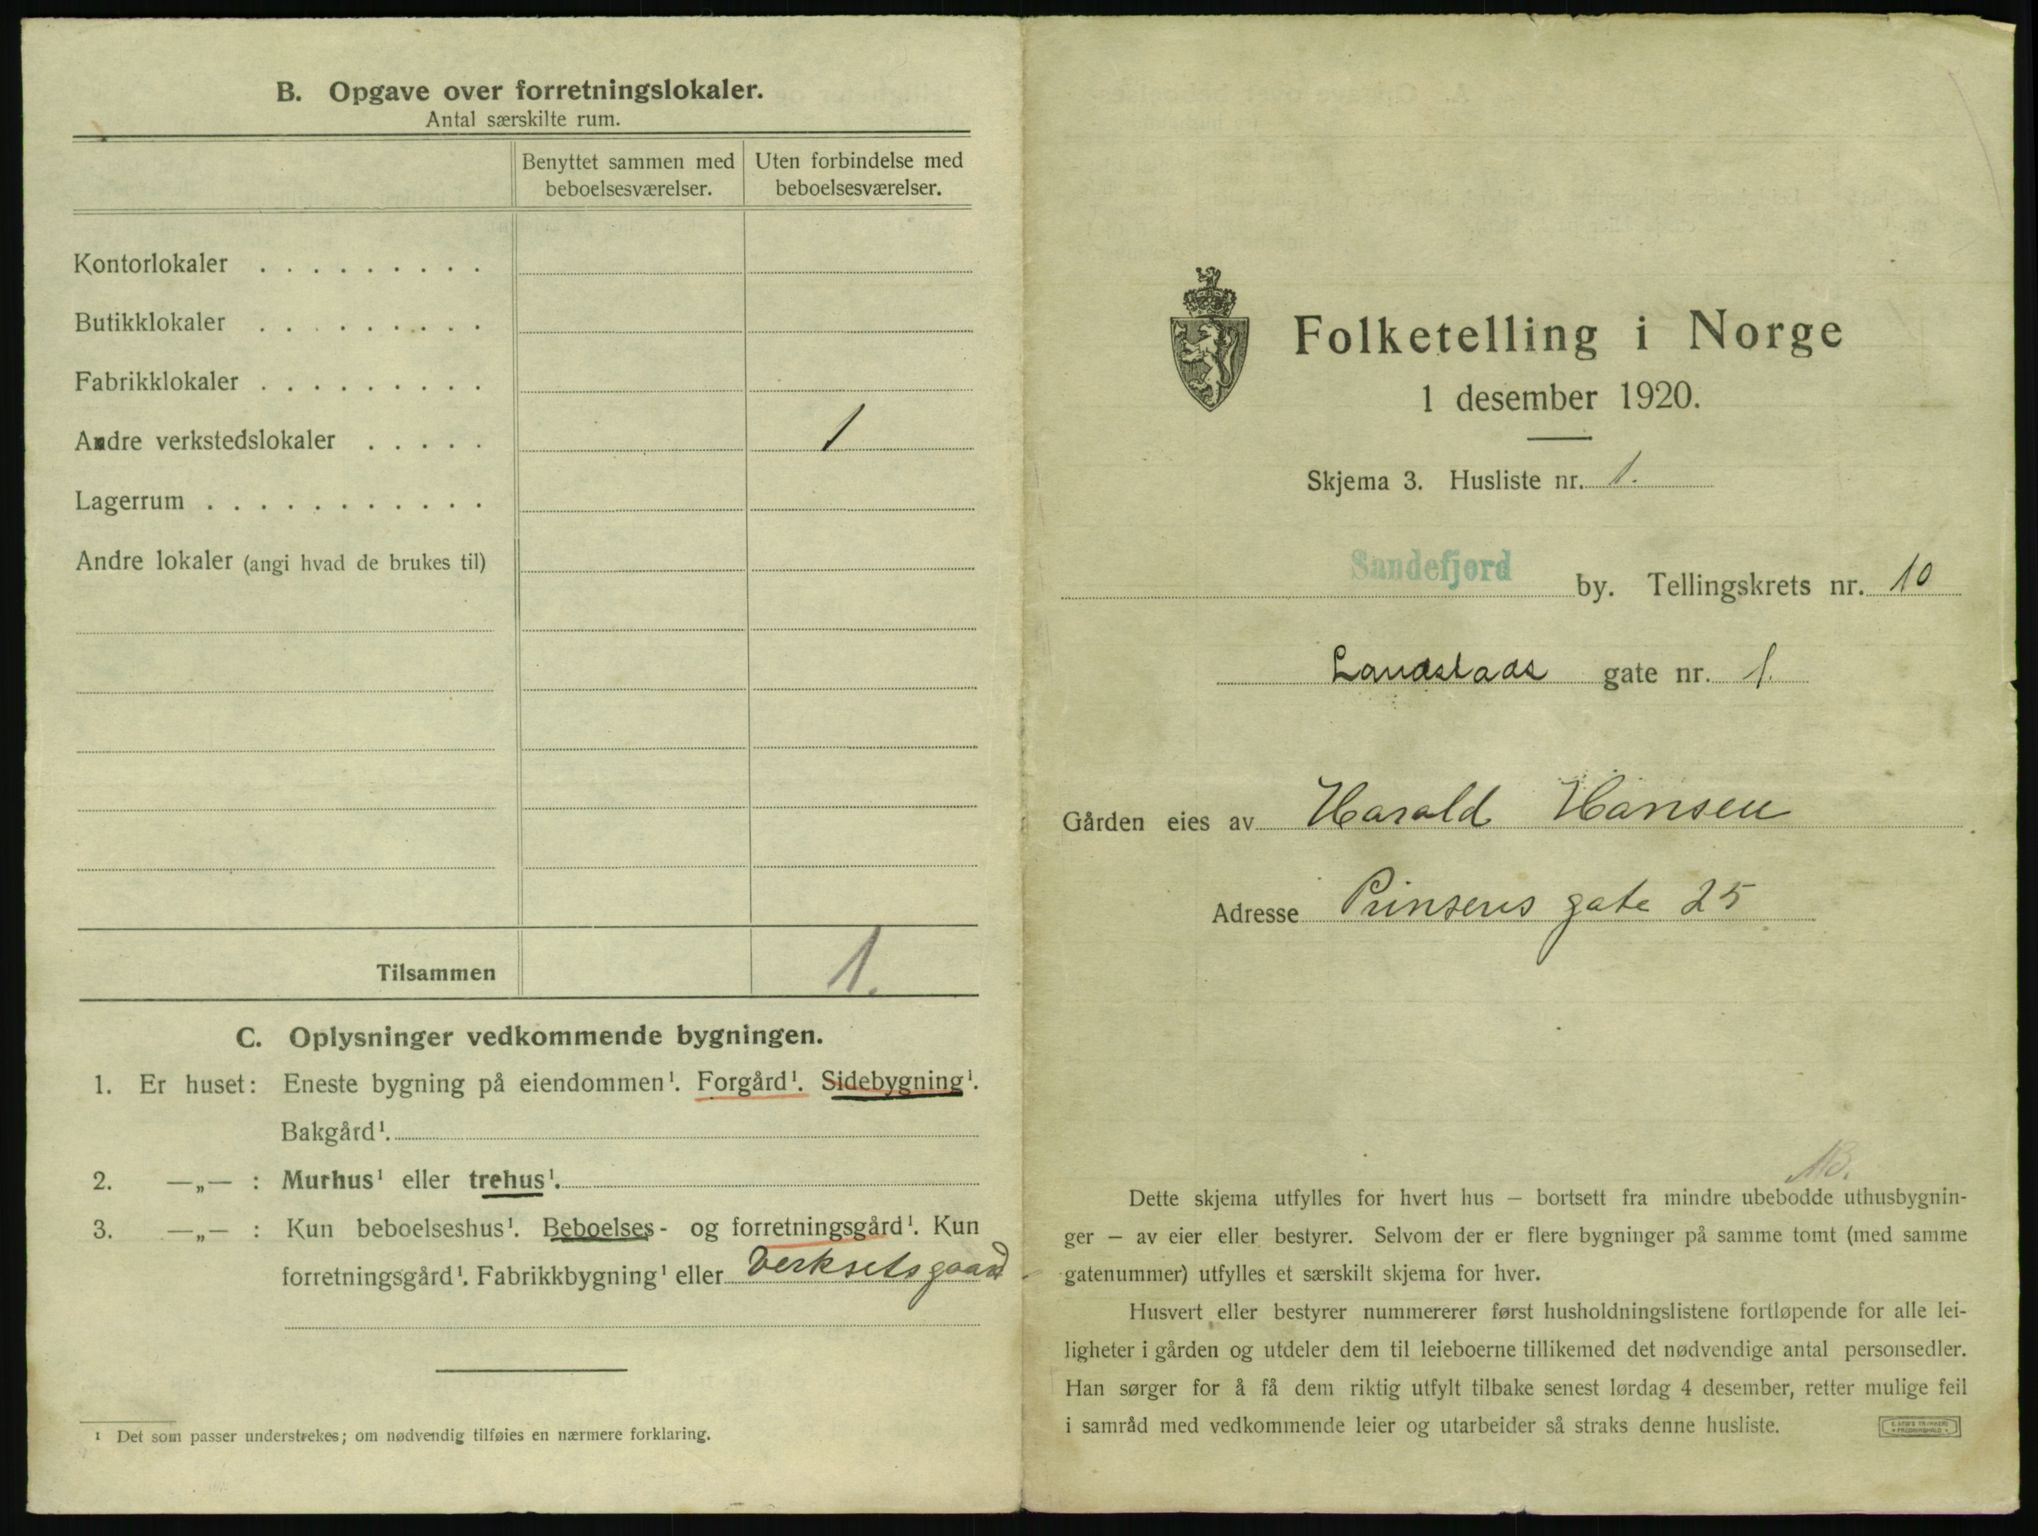 B. Opgave over forretningslokaler.
Antal særskilte rum.
Benyttet sammen med beboelsesværelser.
Uten forbindelse med beboelsesværelser.
Kontorlokaler . . . . . . . . .
Butikklokaler . . . . . . . . .
Fabrikklokaler . . . . . . . . .
Andre verkstedslokaler . . . . . 1
Lagerrum . . . . . . . . . . .
Andre lokaler (angi hvad de brukes til)
Tilsammen 1.
C. Oplysninger vedkommende bygningen.
1. Er huset: Eneste bygning på eiendommen¹. Forgård¹. Sidebygning¹.
Bakgård¹.
2. —„— : Murhus¹ eller trehus¹.
3. —„— : Kun beboelseshus¹. Beboelses- og forretningsgård¹. Kun
forretningsgård¹. Fabrikkbygning¹ eller Verksetsgaard
¹ Det som passer understrekes; om nødvendig tilføies en nærmere forklaring.
Folketelling i Norge
1 desember 1920.
Skjema 3. Husliste nr. 1.
Sandefjord by. Tellingskrets nr. 10
Landstads gate nr. 1.
Gården eies av Harald Hansen
Adresse Prinsens gate 25
Dette skjema utfylles for hvert hus – bortsett fra mindre ubebodde uthusbygnin-
ger – av eier eller bestyrer. Selvom der er flere bygninger på samme tomt (med samme
gatenummer) utfylles et særskilt skjema for hver.
Husvert eller bestyrer nummererer først husholdningslistene fortløpende for alle lei-
ligheter i gården og utdeler dem til leieboerne tillikemed det nødvendige antal personsedler.
Han sørger for å få dem riktig utfylt tilbake senest lørdag 4 desember, retter mulige feil
i samråd med vedkommende leier og utarbeider så straks denne husliste.